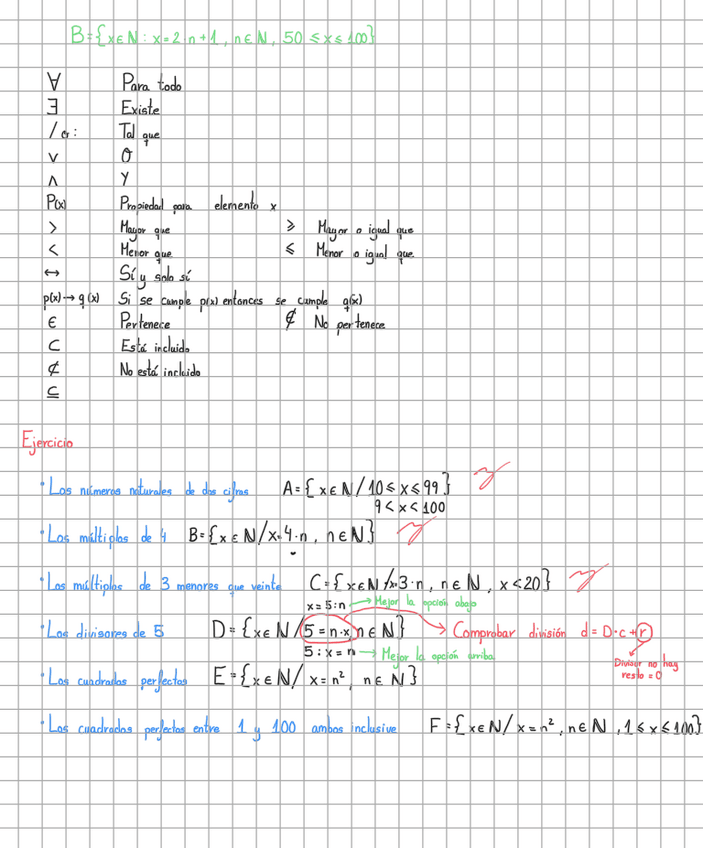 B={x∈N: x=2·n+1, n∈N, 50 ≤x≤100}
∀ Para todo
∃ Existe
/ o : Tal que
∨ O
∧ Y
P(x) Propiedad para elemento x
> Mayor que ≥ Mayor o igual que
< Menor que ≤ Menor o igual que
↔ Sí y solo sí
p(x)→q(x) Si se cumple p(x) entonces se cumple q(x)
∈ Pertenece ∉ No pertenece
⊂ Está incluido
⊄ No está incluido
⊆
Ejercicio
·Los números naturales de dos cifras A={x∈N/10≤x≤99}
9<x<100
·Los múltiplos de 4 B={x∈N/x=4·n, n∈N}
·Los múltiplos de 3 menores que veinte C={x∈N/x=3·n, n∈N, x<20}
x=5:n → Mejor la opción abajo
·Los divisores de 5 D={x∈N/5=n·x, n∈N} → Comprobar división d=D·c+r
5:x=n → Mejor la opción arriba
Divisor no hay
resto = 0
·Los cuadrados perfectos E={x∈N/ x=n², n∈N}
·Los cuadrados perfectos entre 1 y 100 ambos inclusive F={x∈N/ x=n², n∈N, 1≤x≤100}